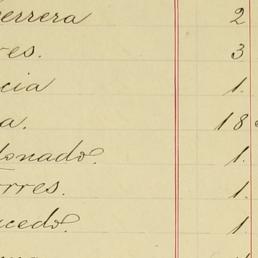 errera 2
res. 3
cia 1.
a. 18
onado. 1.
orres. 1.
cedo. 1